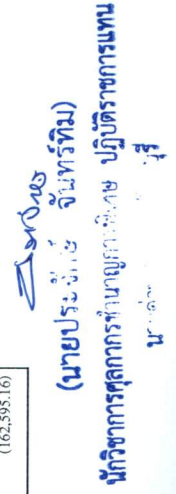 (162,595.16)
(นายประจักษ์ จันทร์ทิม)
นักวิชาการศุลกากรชำนาญการพิเศษ ปฏิบัติราชการแทน